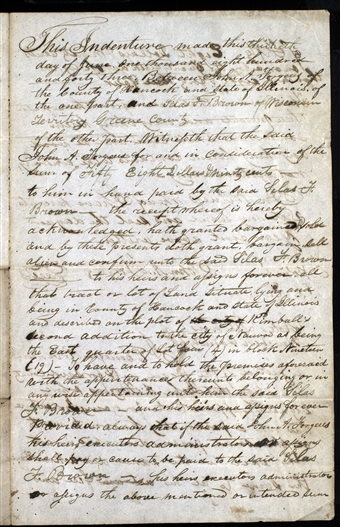 This Indenture made this the
day of June one thousand eight hundred
and forty three Between John A. Forgeus of
the County of Hancock and State of Illinois, of
the one part, and Silas F. Brown of Wisconsin
Territory Greene County
of the other part. Witnesseth that the said
John A. Forgeus for and in consideration of the
sum of Fifty Eight Dollars Ninety cents
to him in hand paid by the said Silas F.
Brown the receipt whereof is hereby
acknowledged, hath granted bargained & sold
and by these presents doth grant, bargain, sell
alien and confirm unto the said Silas F. Brown
to his heirs and assigns forever all
that tract or lot of Land Situate lying and
being in County of Hancock and State of Illinois
and described on the plot of Kimball's
second addition to the City of Nauvoo as being
the East quarter of Lot four (4) in block Nineteen
(19) To have and to hold the premises aforesaid
with the appurtenances thereunto belonging or in
any wise appertaining unto him the said Silas
F. Brown and his heirs and assigns for ever
Provided always that if the said John A. Forgeus
his heirs executors administrators or assigns
shall pay or cause to be paid to the said Silas
F. Brown his heirs executors administrators
or assigns the above mentioned or intended sum